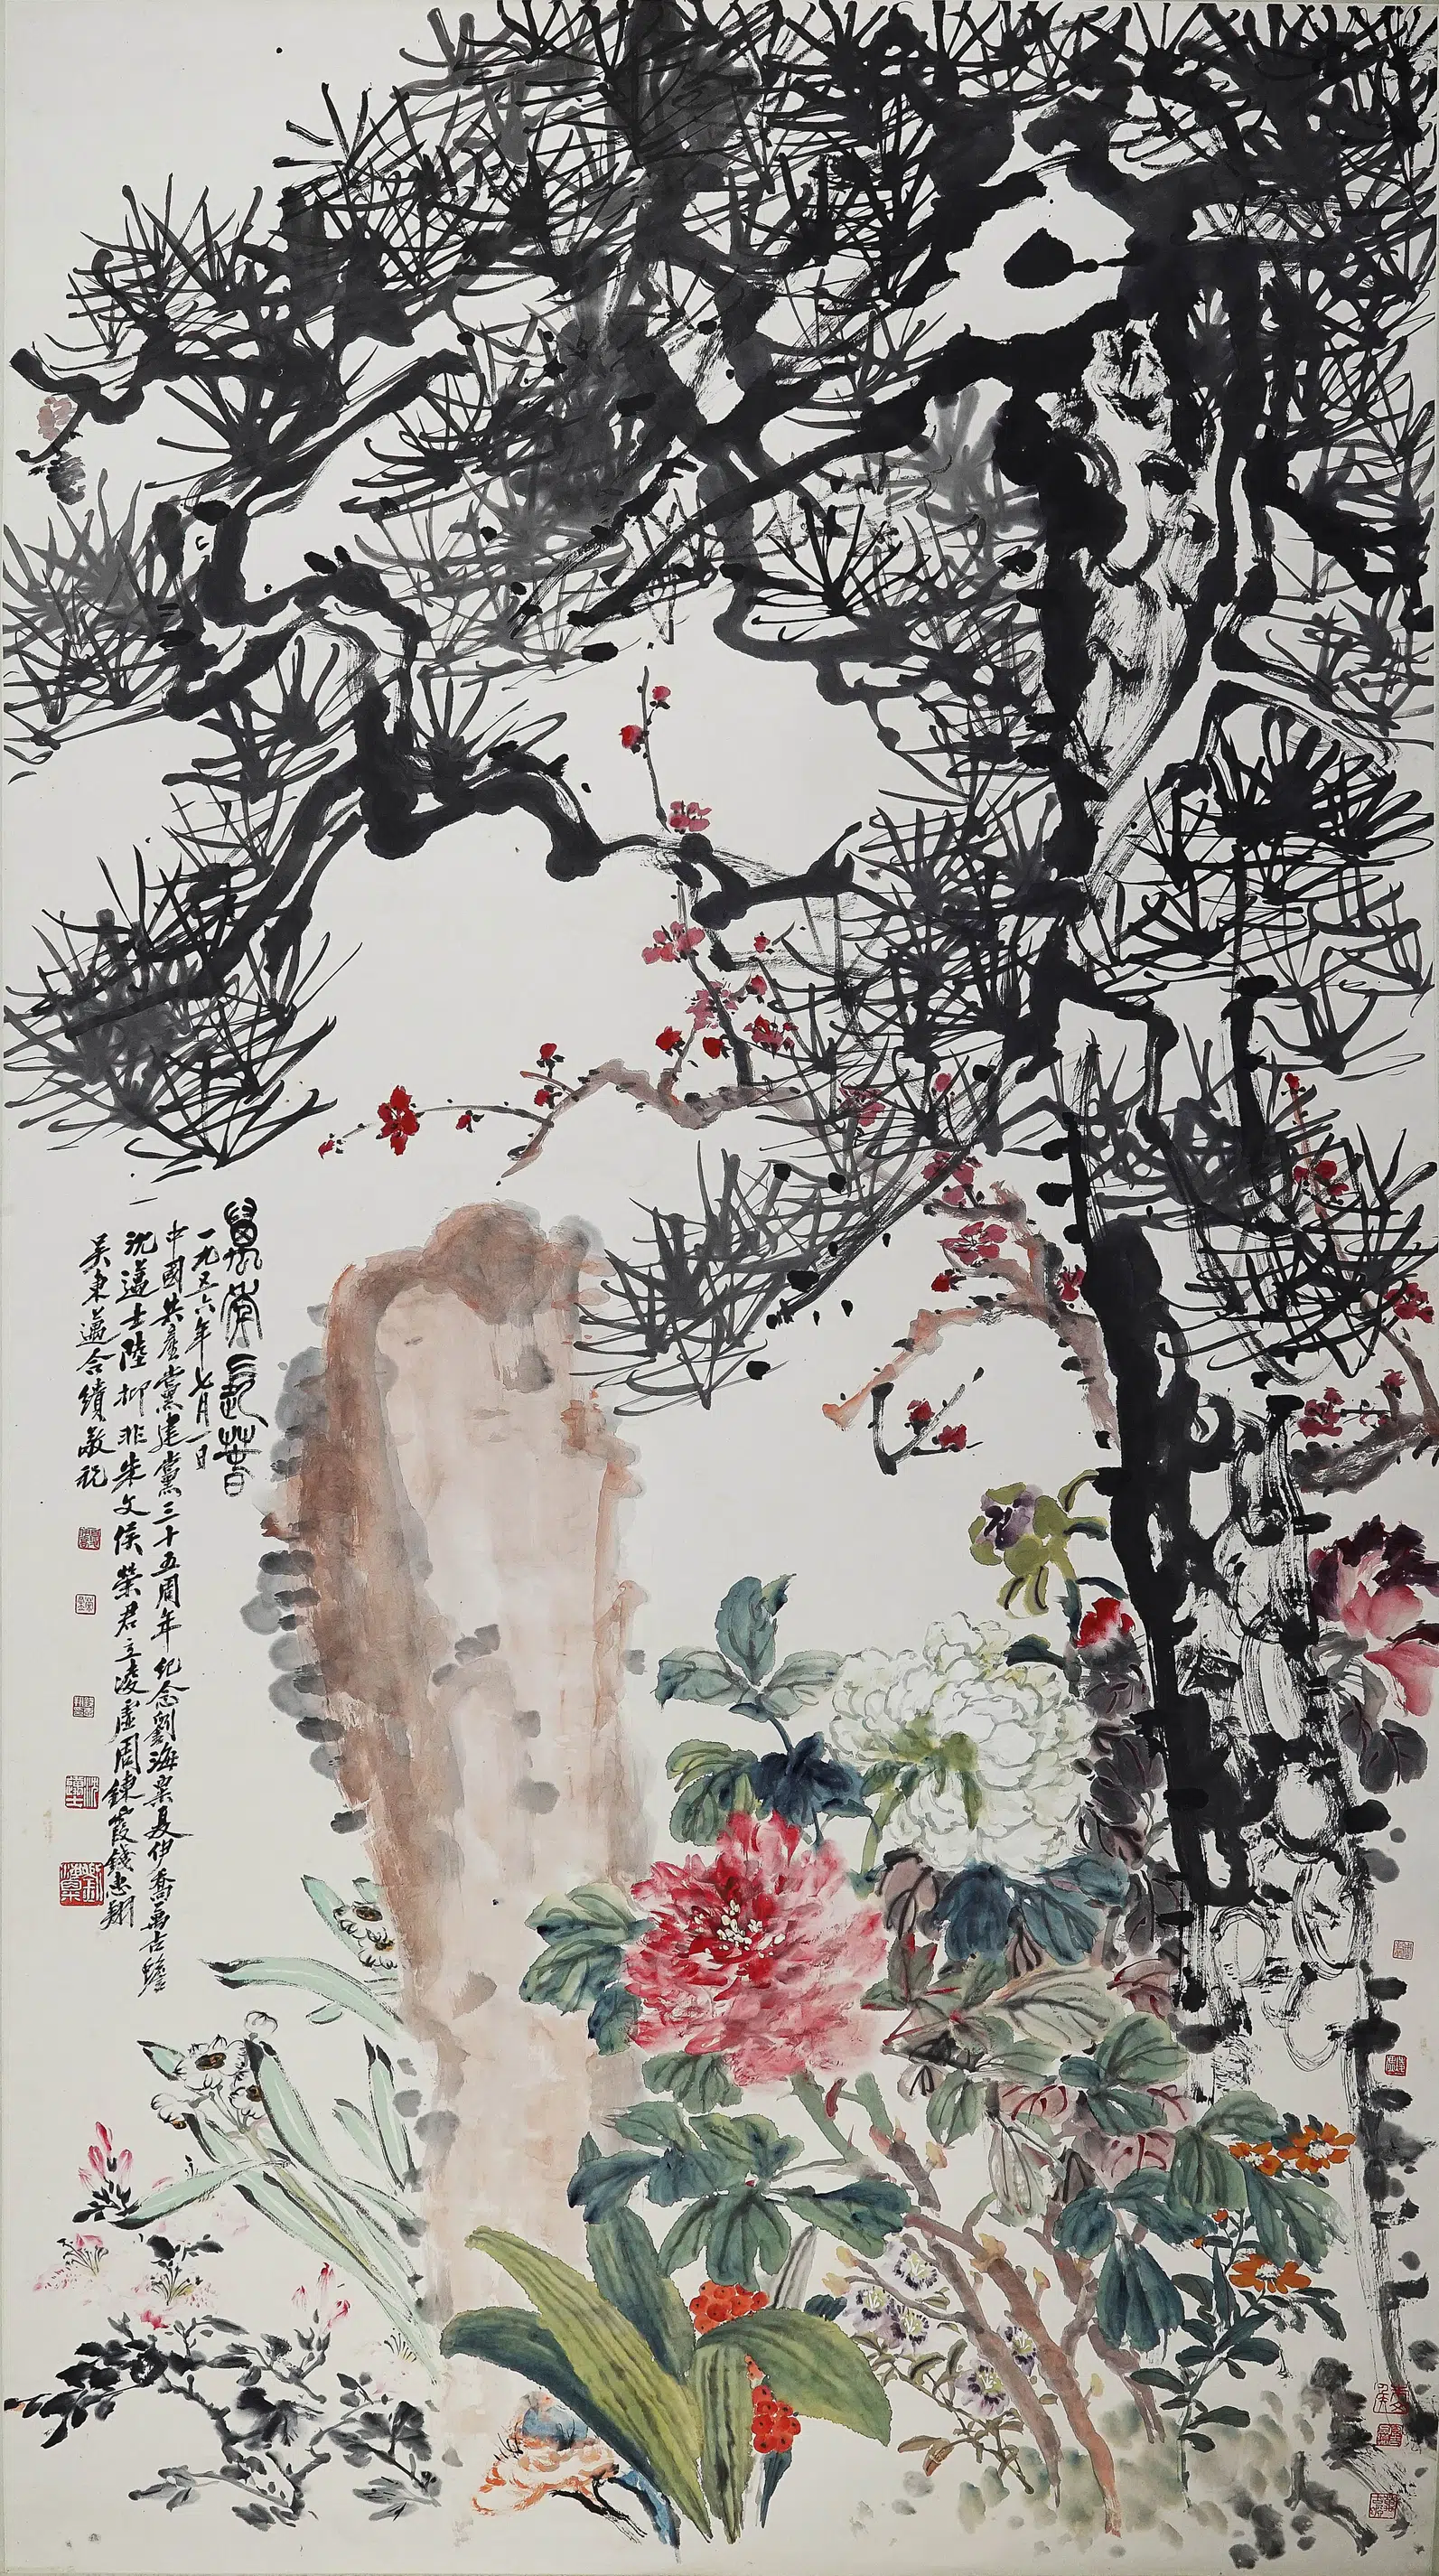 萬年長春
一九五六年七月一日
中國共產黨建黨三十五周年紀念劉海粟夏伊喬萬古蟾
沈邁士陸抑非朱文侯榮君立凌虛周鍊霞錢惠翔
吳東邁合繢敬祝